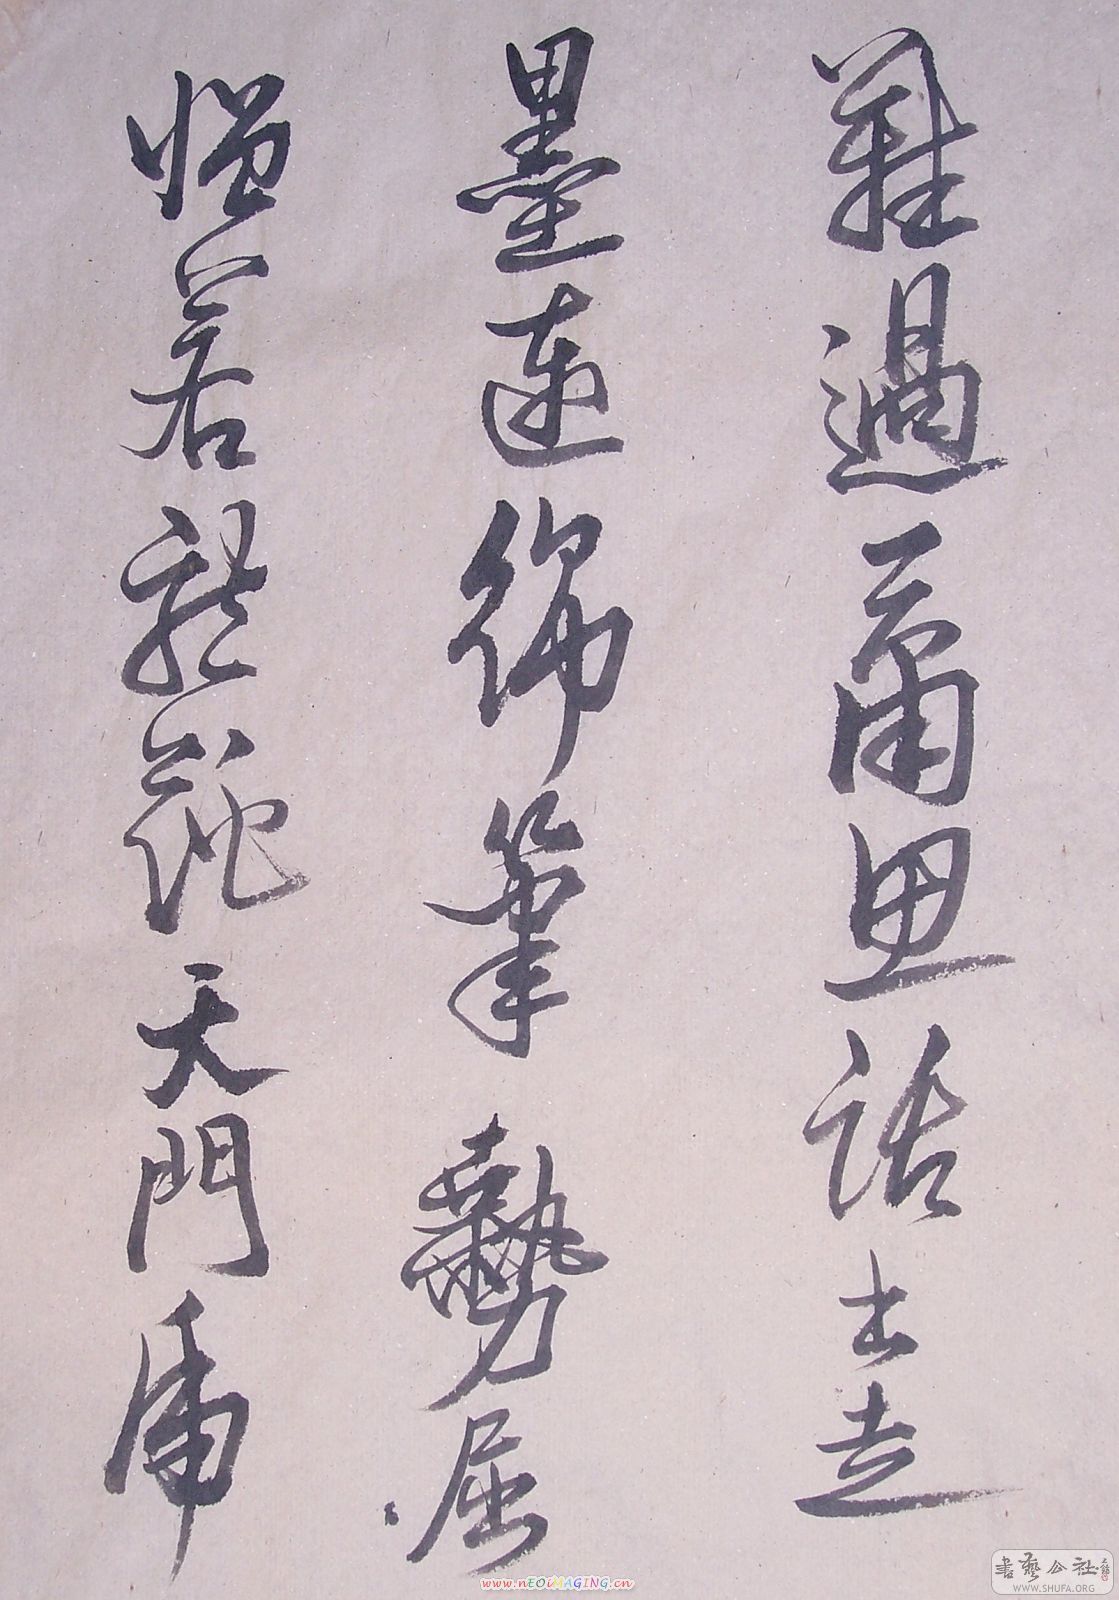 難過蕭思話書走
墨連綿筆勢屈
強若龍天門虎
www.nEOiMAGING.cn
書藝公社
WWW.SHUFA.ORG